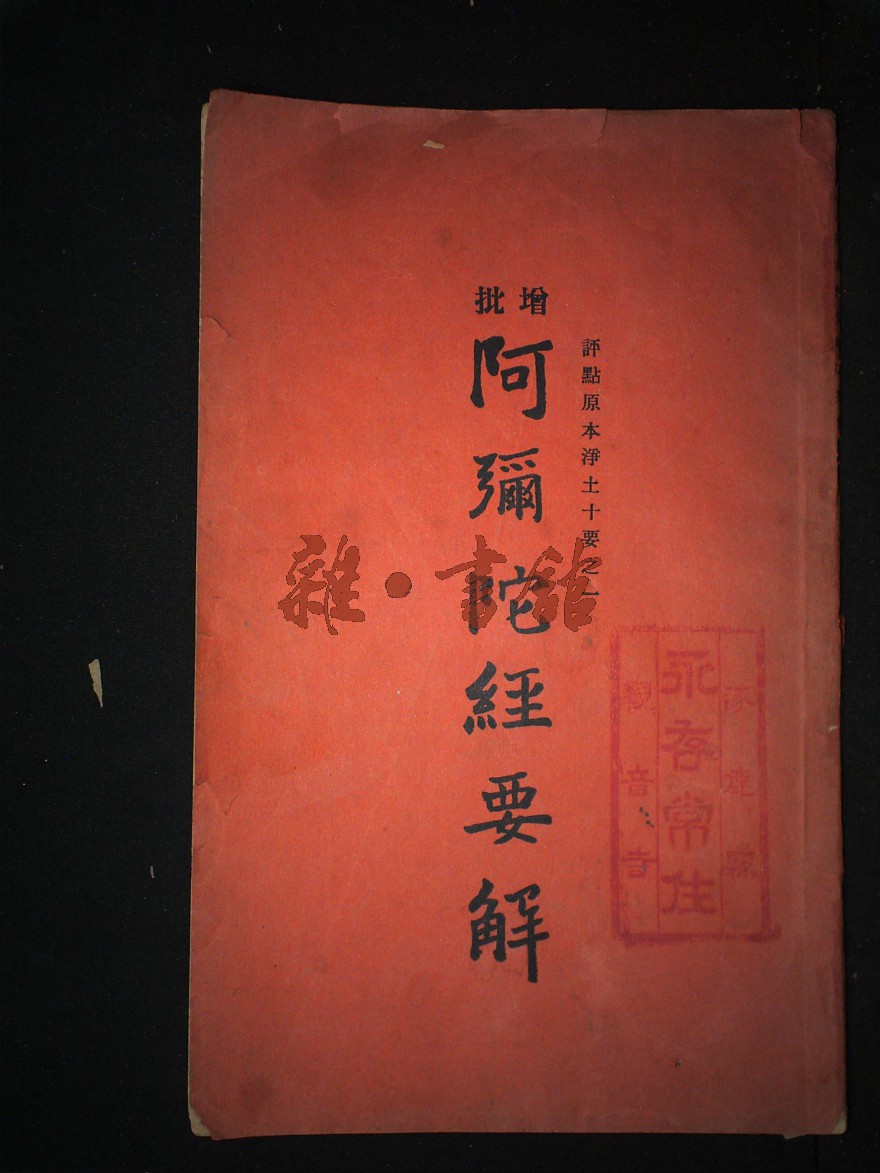 評點原本淨土十要之一
增批
阿彌陀經要解
永存常住
觀音寺
雜·書館